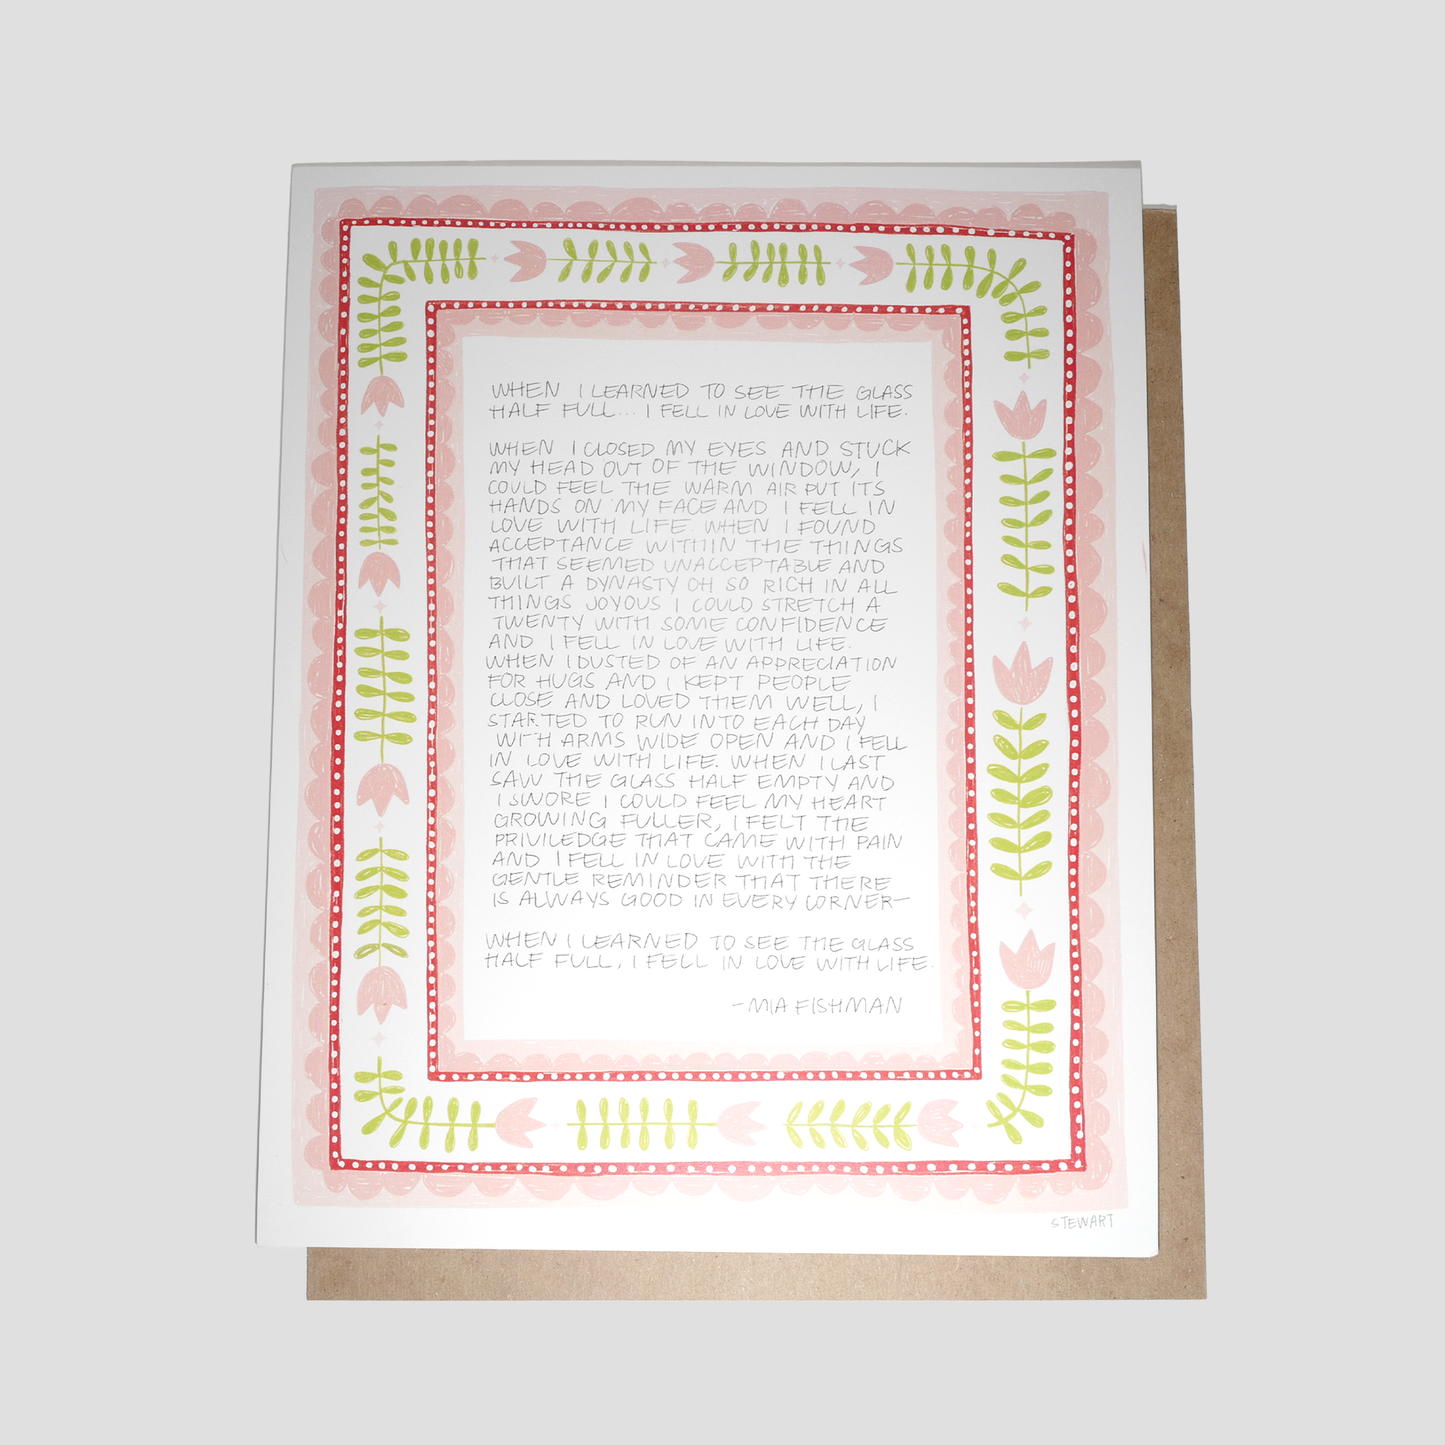 WHEN I LEARNED TO SEE THE GLASS
HALF FULL... I FELL IN LOVE WITH LIFE.
WHEN I CLOSED MY EYES AND STUCK
MY HEAD OUT OF THE WINDOW, I
COULD FEEL THE WARM AIR PUT ITS
HANDS ON MY FACE AND I FELL IN
LOVE WITH LIFE. WHEN I FOUND
ACCEPTANCE WITHIN THE THINGS
THAT SEEMED UNACCEPTABLE AND
BUILT A DYNASTY OH SO RICH IN ALL
THINGS JOYOUS I COULD STRETCH A
TWENTY WITH SOME CONFIDENCE
AND I FELL IN LOVE WITH LIFE.
WHEN I DUSTED OF AN APPRECIATION
FOR HUGS AND I KEPT PEOPLE
CLOSE AND LOVED THEM WELL, I
STARTED TO RUN INTO EACH DAY
WITH ARMS WIDE OPEN AND I FELL
IN LOVE WITH LIFE. WHEN I LAST
SAW THE GLASS HALF EMPTY AND
I SWORE I COULD FEEL MY HEART
GROWING FULLER, I FELT THE
PRIVILEDGE THAT CAME WITH PAIN
AND I FELL IN LOVE WITH THE
GENTLE REMINDER THAT THERE
IS ALWAYS GOOD IN EVERY CORNER—
WHEN I LEARNED TO SEE THE GLASS
HALF FULL, I FELL IN LOVE WITH LIFE.
-MIA FISHMAN
STEWART